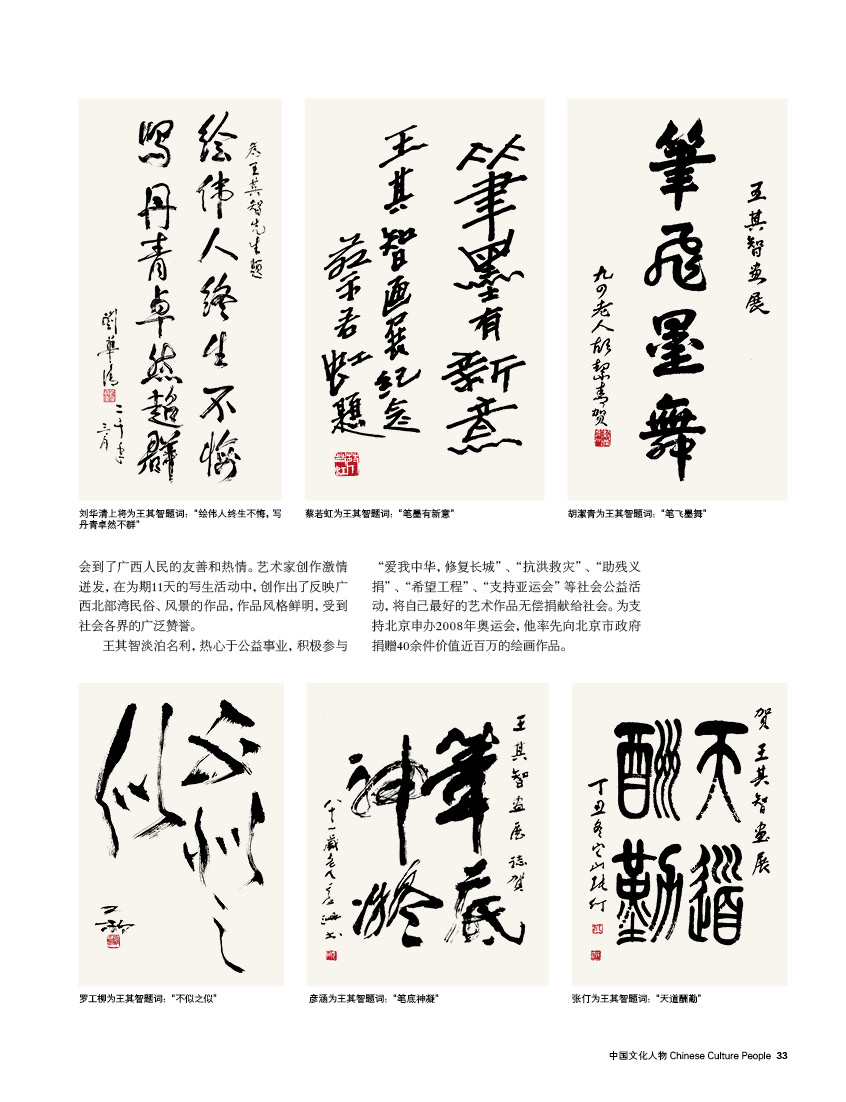 为王其智先生题
绘伟人终生不悔
写丹青卓然超群
刘华清
二千年
三月
筆墨有新意
王其智画展纪念
蔡若虹题
王其智画展
筆飛墨舞
九四老人胡絜青贺
刘华清上将为王其智题词：“绘伟人终生不悔，写
丹青卓然不群”
蔡若虹为王其智题词：“笔墨有新意”
胡潔青为王其智题词：“笔飞墨舞”
会到了广西人民的友善和热情。艺术家创作激情
迸发，在为期11天的写生活动中，创作出了反映广
西北部湾民俗、风景的作品，作品风格鲜明，受到
社会各界的广泛赞誉。
王其智淡泊名利，热心于公益事业，积极参与
“爱我中华，修复长城”、“抗洪救灾”、“助残义
捐”、“希望工程”、“支持亚运会”等社会公益活
动，将自己最好的艺术作品无偿捐献给社会。为支
持北京申办2008年奥运会，他率先向北京市政府
捐赠40余件价值近百万的绘画作品。
不似之
似
工柳
王其智畫展誌贺
筆底
神凝
八十一歲老人彦涵书
贺王其智畫展
天道
酬勤
丁丑冬
张仃
罗工柳为王其智题词：“不似之似”
彦涵为王其智题词：“笔底神凝”
张仃为王其智题词：“天道酬勤”
中国文化人物 Chinese Culture People 33